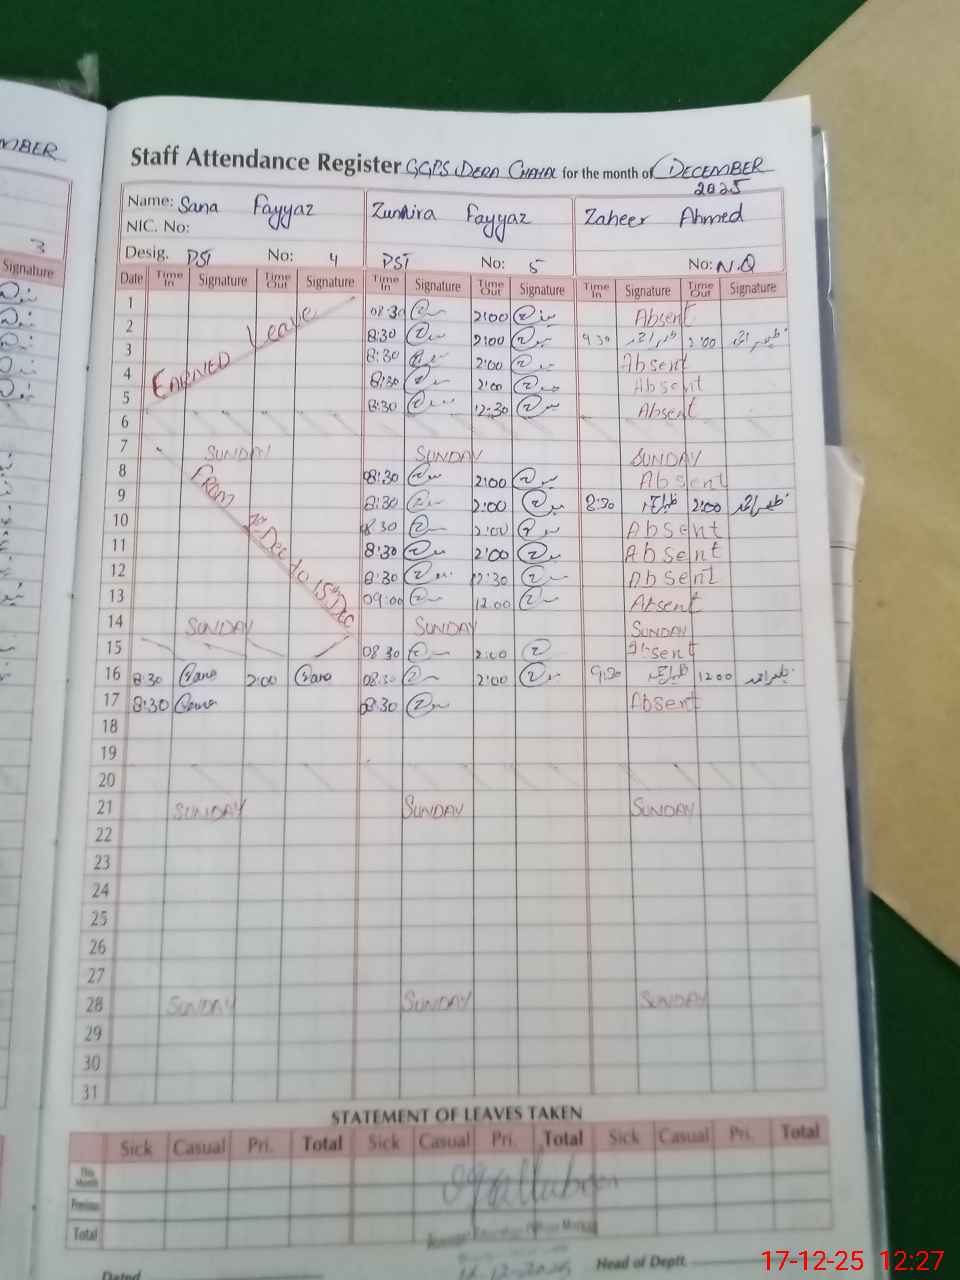 MBER
3
Signature
Staff Attendance Register GGPS DERA CHAHAL for the month of DECEMBER
2025
Name: Sana Fayyaz Zunaira Fayyaz Zaheer Ahmed
NIC. No:
Desig. PST No: 4 PST No: 5 No: N.Q
Date Time In Signature Time Out Signature Time In Signature Time Out Signature Time In Signature Time Out Signature
1 08:30 2:00 Absent
2 8:30 2:00 9:30 ظہیر احمد 2:00 ظہیر احمد
3 8:30 2:00 Absent
4 8:30 2:00 Absent
5 8:30 12:30 Absent
EARNED Leave
6
7 SUNDAY SUNDAY SUNDAY
8 08:30 2:00 Absent
9 8:30 2:00 8:30 ظہیر احمد 2:00 ظہیر احمد
10 08:30 2:00 Absent
11 8:30 2:00 Absent
12 8:30 12:30 Absent
13 09:00 12:00 Absent
FROM Dec to 15th DEC
14 SUNDAY SUNDAY SUNDAY
15 08:30 2:00 Absent
16 8:30 Sana 2:00 Sana 08:30 2:00 9:30 ظہیر احمد 12:00 ظہیر احمد
17 8:30 Sana 08:30 Absent
18
19
20
21 SUNDAY SUNDAY SUNDAY
22
23
24
25
26
27
28 SUNDAY SUNDAY SUNDAY
29
30
31
STATEMENT OF LEAVES TAKEN
Sick Casual Pri. Total Sick Casual Pri. Total Sick Casual Pri. Total
This Month
Previous
Total
Dated Head of Deptt.
17-12-25 12:27